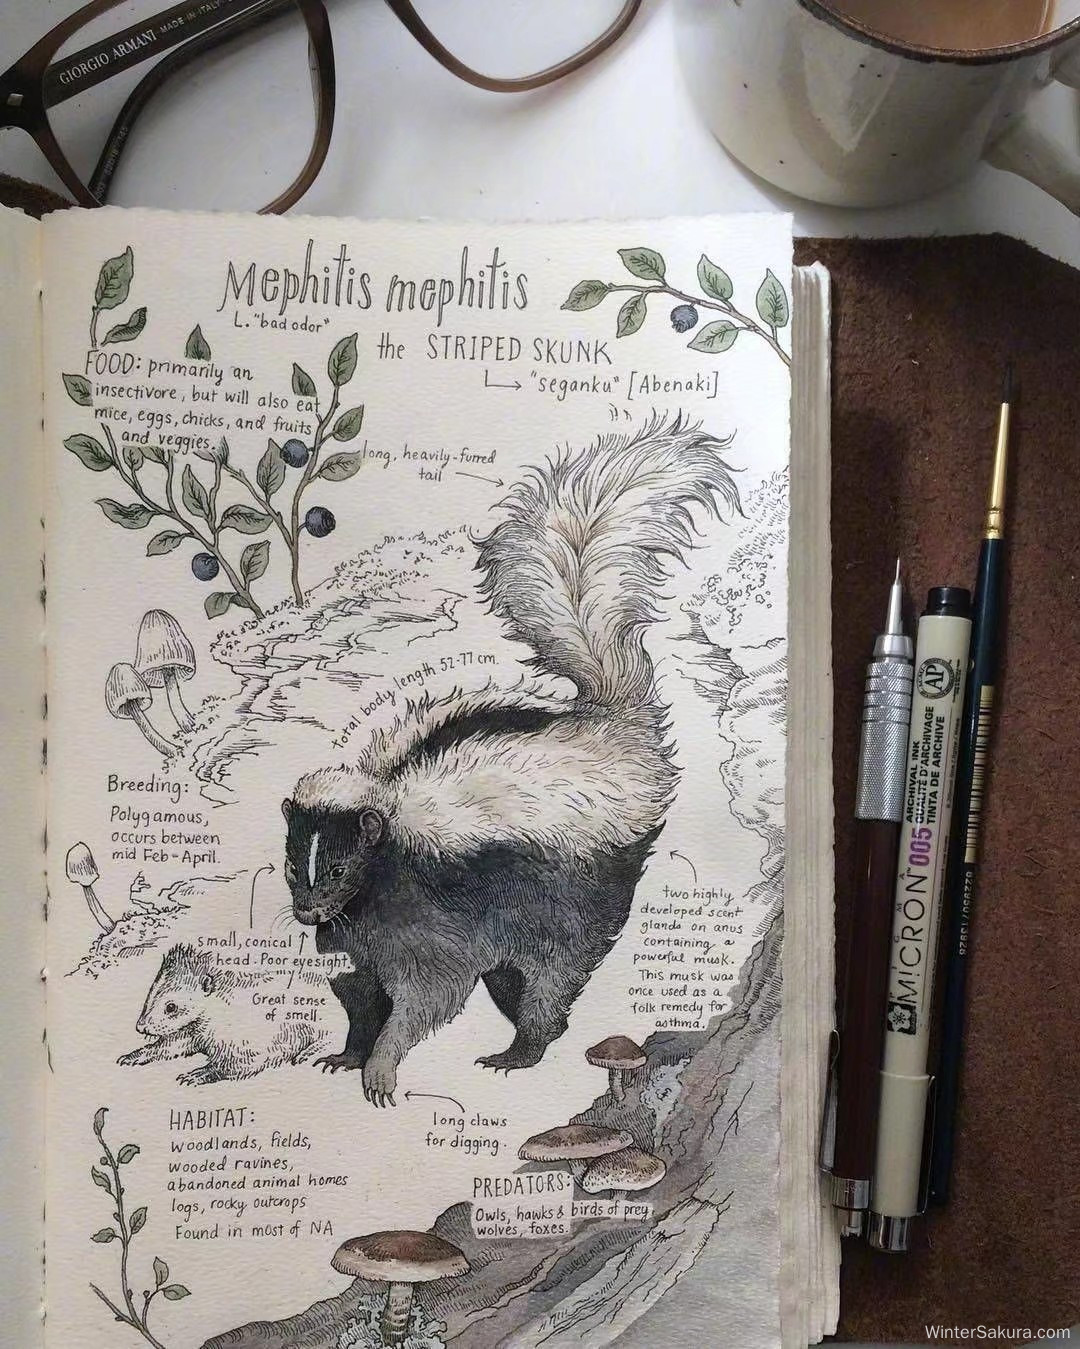 GIORGIO ARMANI MADE IN ITALY
Mephitis mephitis
L. "bad odor"
the STRIPED SKUNK
"seganku" [Abenaki]
FOOD: primarily an
insectivore, but will also eat
mice, eggs, chicks, and fruits
and veggies.
long, heavily-furred
tail
total body length 52-77 cm.
Breeding:
Polygamous,
occurs between
mid Feb-April.
small, conical
head. Poor eyesight,
Great sense
of smell.
two highly
developed scent
glands on anus
containing a
powerful musk.
This musk was
once used as a
folk remedy for
asthma.
long claws
for digging.
HABITAT:
woodlands, fields,
wooded ravines,
abandoned animal homes
logs, rocky outcrops
Found in most of NA
PREDATORS:
Owls, hawks & birds of prey,
wolves, foxes.
AP
ARCHIVAL INK
QUALITÉ D'ARCHIVAGE
TINTA DE ARCHIVE
MICRON 005
WinterSakura.com